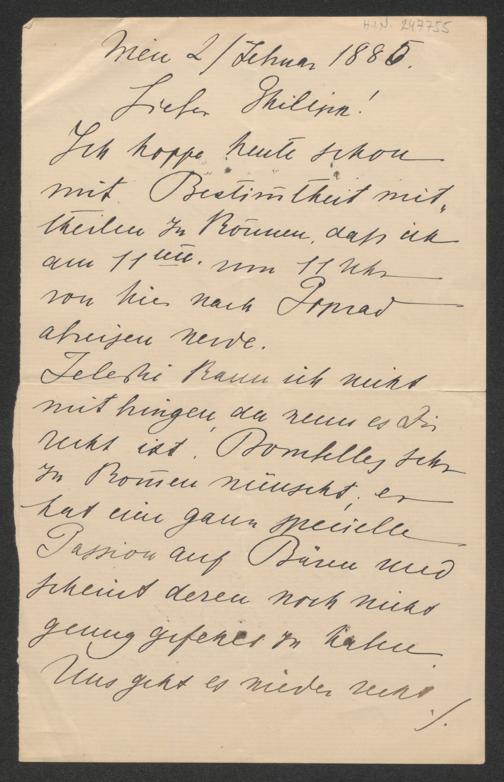 H.I.N. 247755
Wien 2/Februar 1885.
Lieber Philipp!
Ich hoffe heute schon
mit Bestimtheit mit„
theilen zu können, daß ich
am 11ten. um 11 Uhr
von hier nach Poprad
abreisen werde.
Teleki kann ich nicht
mitbringen, da wenn es Dir
recht ist, Bombelles sehr
zu komen wünscht, er
hat eine ganz specielle
Passion auf Bären und
scheint deren noch nicht
genug gesehen zu haben.
Uns geht es wieder recht
./.